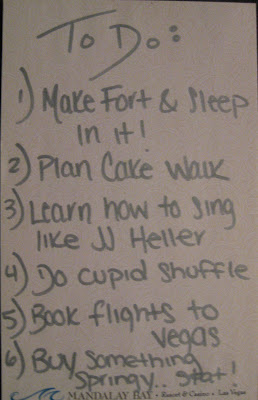 To Do:
1) Make Fort & Sleep
In it!
2) Plan Cake Walk
3) Learn how to sing
like JJ Heller
4) Do cupid shuffle
5) Book flights to
Vegas
6) Buy Something
Springy.. stat!
MANDALAY BAY • Resort & Casino • Las Vegas